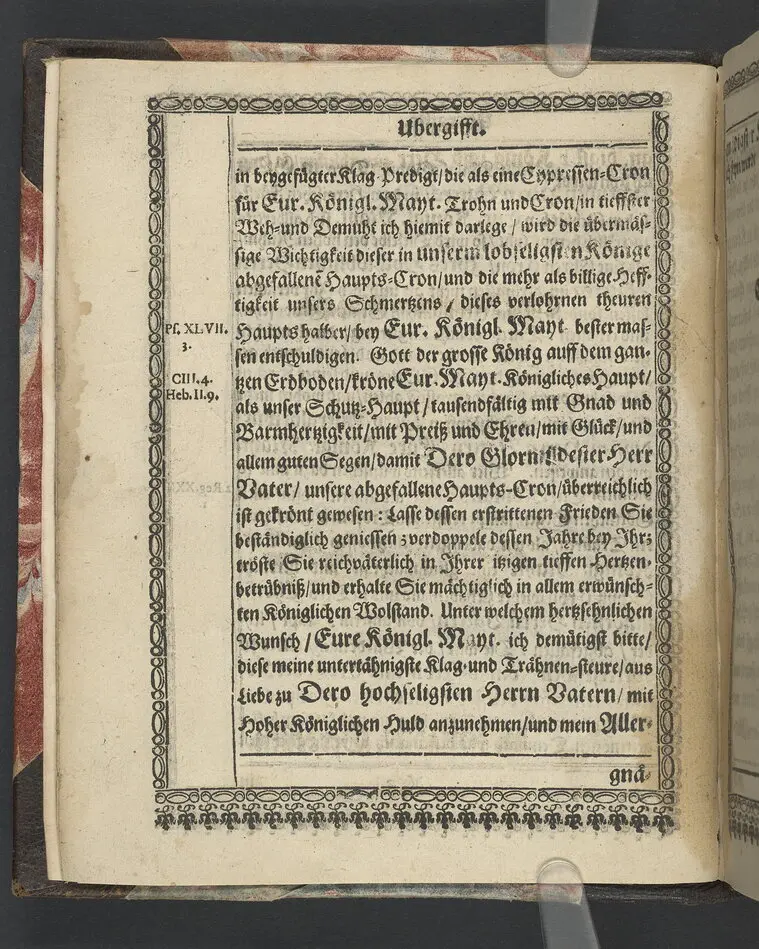 Ubergifft.
in beygefügter Klag-Predigt/die als eine Cypressen-Cron
für Eur. Königl. Mayt. Trohn und Cron/in tieffster
Weh-und Demuht ich hiemit darlege / wird die übermäs-
sige Wichtigkeit dieser in unserm lobseligsten Könige
abgefallenē Haupts-Cron/und die mehr als billige Heff-
tigkeit unsers Schmertzens / dieses verlohrnen theuren
Pf. XLVII.
3.
Haupts halber/bey Eur. Königl. Mayt. bester mas-
sen entschuldigen. Gott der grosse König auff dem gan-
CIII. 4.
Heb. II. 9.
tzen Erdboden/kröne Eur. Mayt. Königliches Haupt/
als unser Schutz-Haupt/tausendfältig mit Gnad und
Barmhertzigkeit/mit Preiß und Ehren/mit Glück/und
allem guten Segen/damit Dero Herr
Vater/ unsere abgefallene Haupts-Cron/überreichlich
ist gekrönt gewesen: Lasse dessen erstrittenen Frieden Sie
beständiglich geniessen; verdoppele dessen Jahre bey Ihr;
tröste Sie reichväterlich in Ihrer itzigen tieffen Hertzen-
betrübniß/und erhalte Sie mächtiglich in allem erwünsch-
ten Königlichen Wolstand. Unter welchem hertzsehnlichen
Wunsch / Eure Königl. Mayt. ich demütigst bitte/
diese meine untertähnigste Klag-und Trähnen-steure/aus
Liebe zu Dero hochseligsten Herrn Vatern/ mit
Hoher Königlichen Huld anzunehmen/und mein Aller-
gnä-